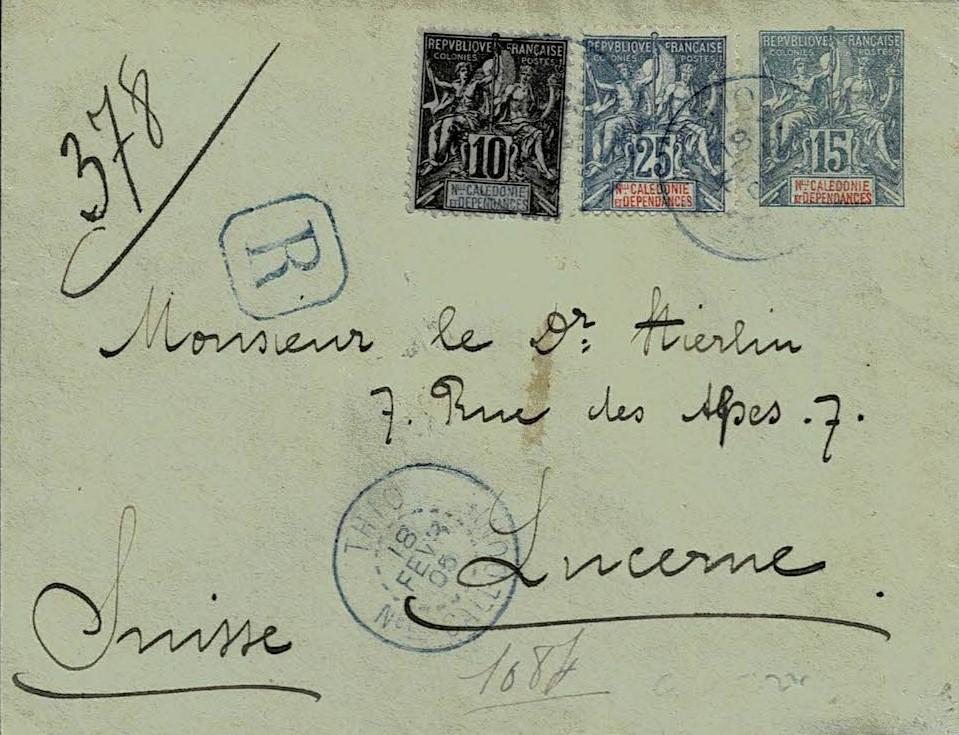 378
REPVBLIQVE FRANÇAISE
COLONIES POSTES
10
Nlle CALEDONIE
ET DÉPENDANCES
REPVBLIQVE FRANÇAISE
COLONIES POSTES
25
Nlle CALEDONIE
ET DÉPENDANCES
REPVBLIQVE FRANÇAISE
COLONIES POSTES
15
Nlle CALEDONIE
ET DÉPENDANCES
R
Monsieur le Dr: Hierlin
7. Rue des Alpes. 7.
Lucerne.
Suisse
THIO
18
FEVR
05
Nlle CALEDONIE